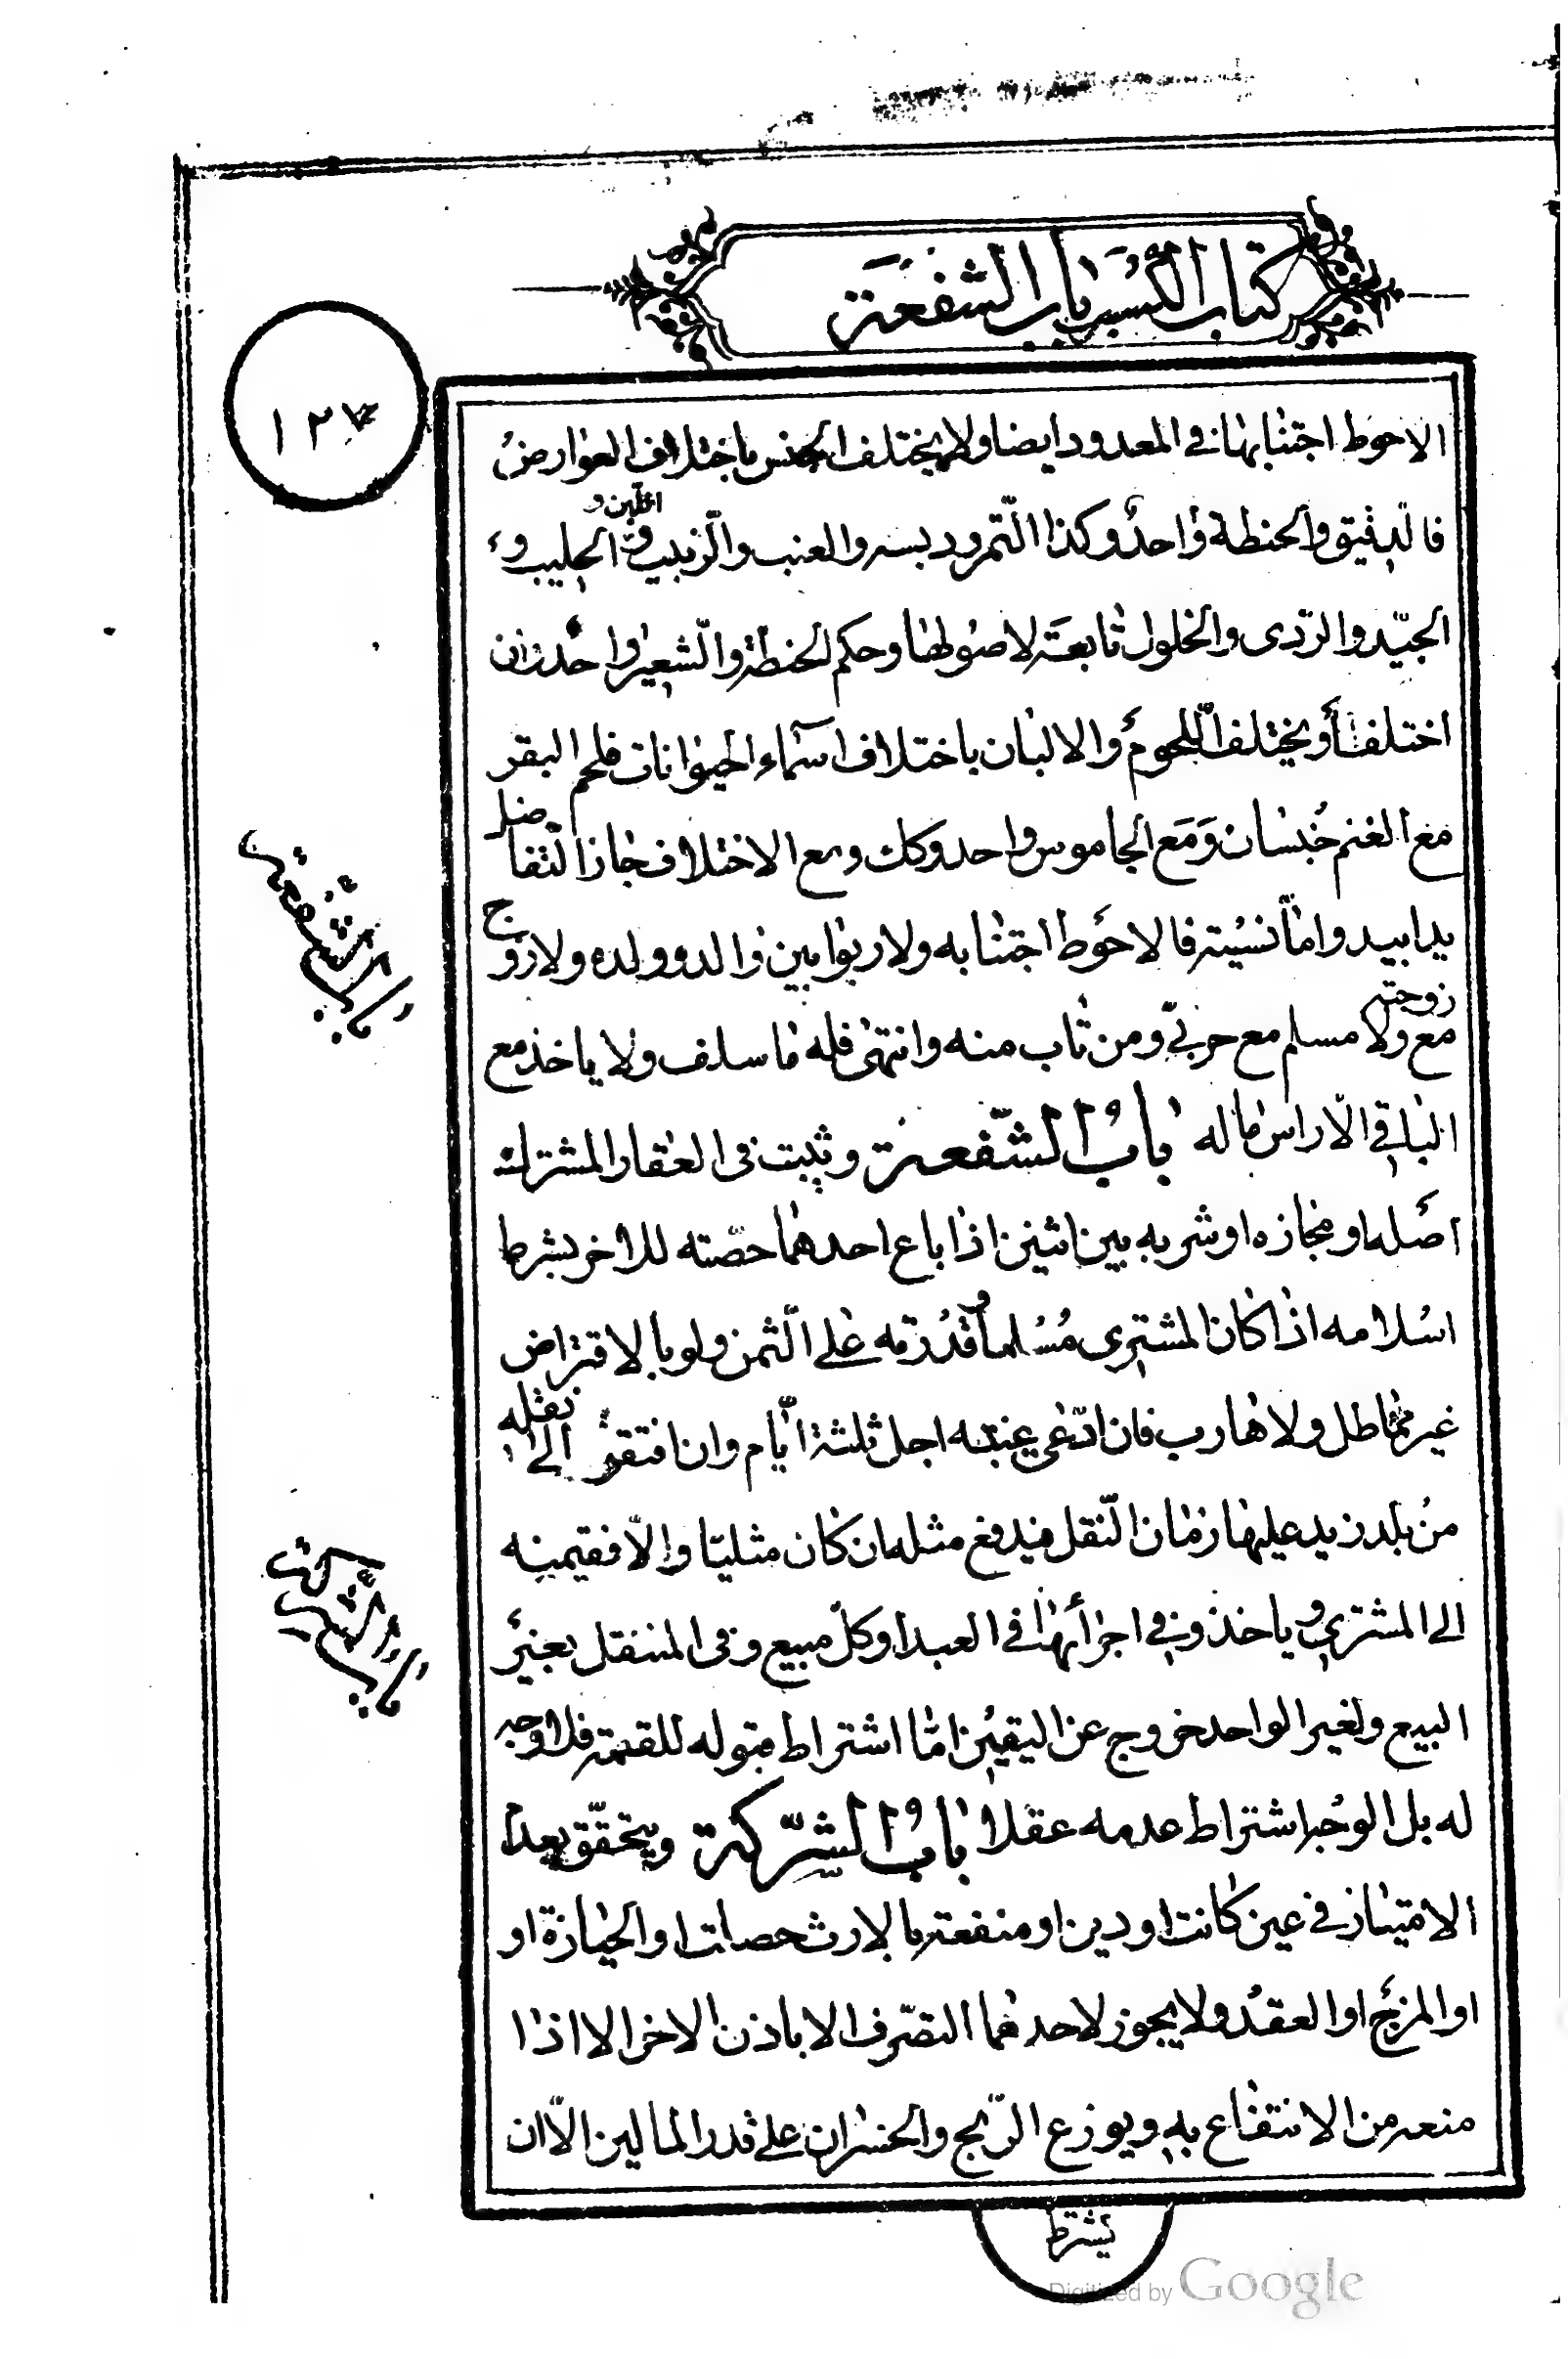 كتاب الكسب باب الشفعة
١٢٧
الاحوط اجتنابها في المعدود ايضا ولا يختلف الجنس باختلاف العوارض
فالدقيق والحنطة واحد وكذا التمر ودبسه والعنب والزبيب واللبن و الحليب و
الجيّد والردى والخلول تابعة لاصولها وحكم الحنطة والشعير واحد وان
اختلفا ويختلف اللحوم والالبان باختلاف اسماء الحيوانات فلحم البقر
مع الغنم جنسان ومع الجاموس واحد وكك ومع الاختلاف جاز التفاضل
يدا بيد واما نسيئة فالاحوط اجتنابه ولا ربوا بين والد وولده ولا زوج
مع زوجته ولا مسلم مع حربيّ ومن تاب منه وانتهى فله ما سلف ولا ياخذ مع
الباقي الّا راس ماله باب الشّفعة وثبت في العقار المشترك
اصله او مجازه او شربه بين اثنين اذا باع احدهما حصّته للاخر بشرط
اسلامه اذا كان المشتري مسلما وقدرته على الثمن ولو بالاقتراض
غير مماطل ولا هارب فان ادّعى غيبته اجل ثلثة ايّام وان افتقر الى نقله
من بلد زيد عليها زمان النّقل فيدفع مثله ان كان مثليّا والّا فقيمته
الى المشتري وياخذ وفي اجرائها في العبد او كلّ مبيع وفي المنتقل بغير
البيع ولغير الواحد خروج عن اليقين امّا اشتراط قبوله للقسمة فلا وجه
له بل الوجه اشتراط عدمه عقلا باب الشّركة ويتحقّق بعدم
الامتياز في عين كانت او دين او منفعة بالارث حصلت او الحيازة او
او المزج او العقد ولا يجوز لاحدهما التصّرف الا باذن الاخر الا اذا
منعه من الانتفاع به ويوزع الرّبح والخسران على قدر المالين الّا ان
يشترط
باب الشفعة
باب الشركة
Digitized by Google